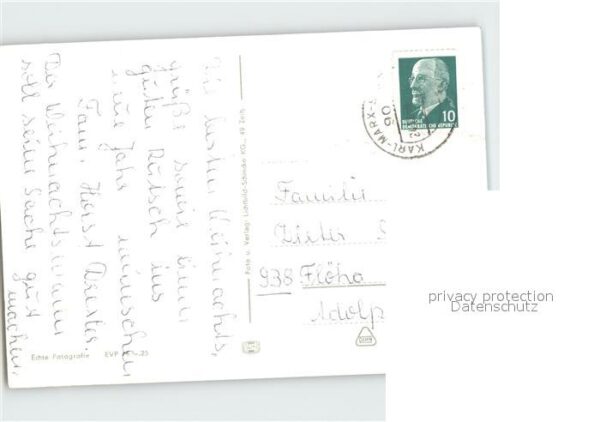 Die besten Weihnachts,
grüße sowie einen
guten Rutsch ins
neue Jahr wünschen
Fam. Horst
Der Weihnachtsmann
soll seine Sache gut
machen.
Echte Fotografie EVP
Foto u. Verlag: Lichtbild-Schincke KG., 49 Zeitz
DEUTSCHE
DEMOKRATISCHE REPUBLIK
10
KARL-MARX-
90
Familie
Dieter
938 Flöha
Adolp
privacy protection
Datenschutz